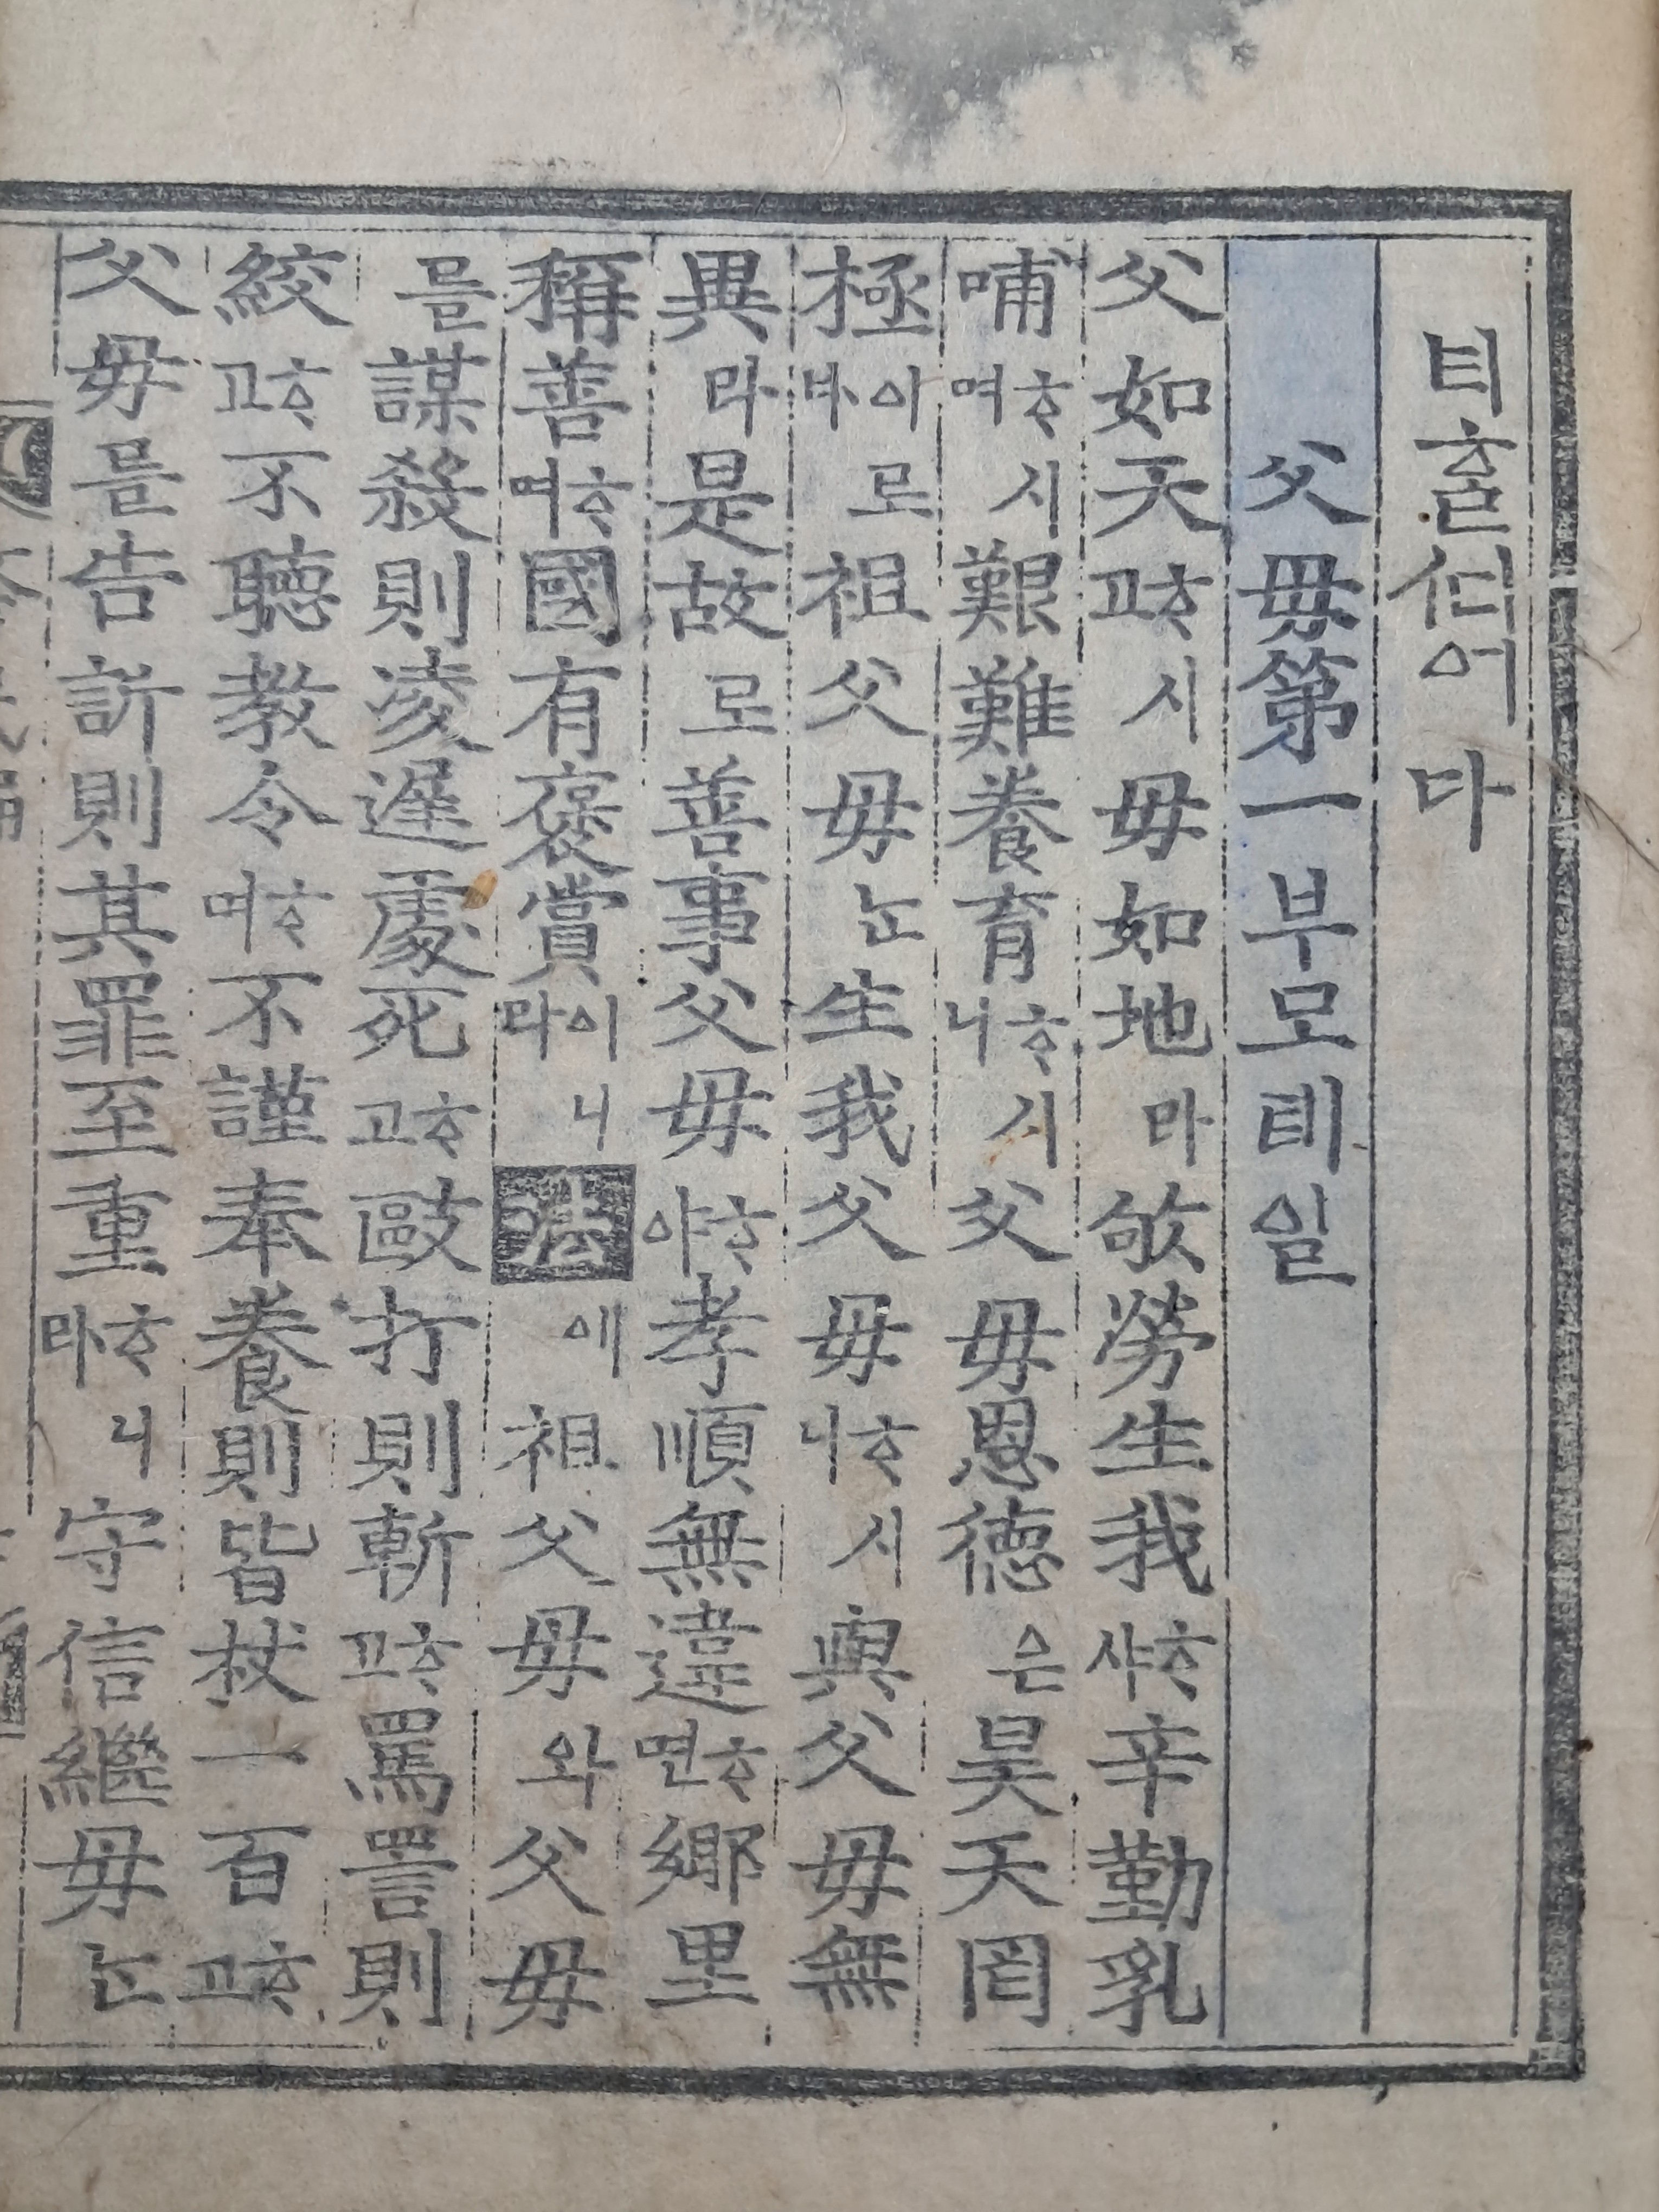 티홀ᄯᅵᆫ어다
父母第一부모뎨일
父如天ᄒᆞ시고母如地라劬勞生我ᄒᆞ샤辛勤乳
哺ᄒᆞ시며艱難養育ᄒᆞ시니父母恩德은昊天罔
極이로다祖父母ᄂᆞᆫ生我父母ᄒᆞ시니與父母無
異라是故로善事父母ᄒᆞ야孝順無違ᄒᆞ면鄕里
稱善ᄒᆞ며國有褒賞이니라法에祖父母와父母
를謀殺則凌遲處死ᄒᆞ고毆打則斬ᄒᆞ고罵詈則
絞ᄒᆞ고不聽教令ᄒᆞ며不謹奉養則皆杖一百ᄒᆞ고
父母를告訴則其罪至重ᄒᆞ니라守信繼母ᄂᆞᆫ